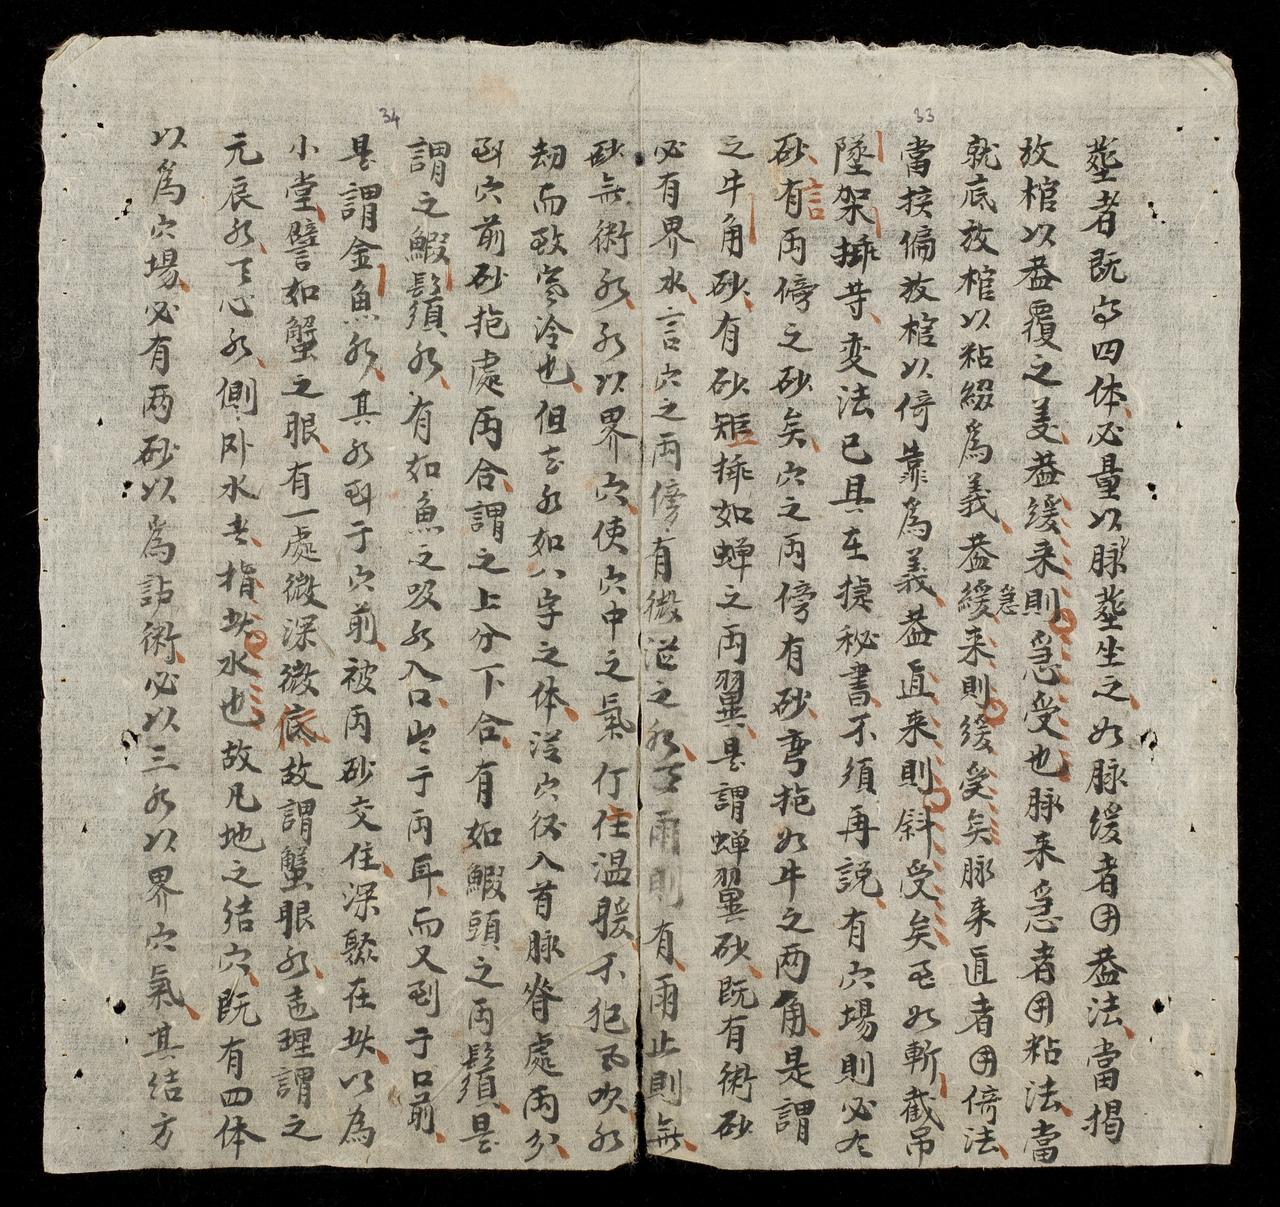 33
葬者既丂四体必量以脉葬坐之如脉缓者用葢法當揭
放棺以葢覆之美葢缓来則急受也脉来急者用粘法當
就底放棺以粘綴為義葢緩急来則缓受矣脉来直者用倚法
當挨偏放棺以倚靠為義葢直来則斜受矣至如斬截吊
墜架排等变法已具在捷秘書不須再說有穴場則必有
砂有两傍之砂矣穴之两傍有砂弯抱如牛之两角是謂
之牛角砂有砂短排如蝉之两翼是謂蝉翼砂既有術砂
必有界水言穴之两傍有微茫之水雨則有雨止則無
34
砂無術水水以界穴使穴中之氣行住温暖不犯風吹水
劫而致寒冷也但言水如八字之体從穴後入首脉脊處两分
到穴前砂抱處两合謂之上分下合有如鰕頭之两鬚是
謂之鰕鬚水有如魚之吸水入口出于两耳而又到于口前
是謂金魚水其水到于穴前被两砂交住深聚在此以為
小堂譬如蟹之眼有一處微深微底故謂蟹眼水也理謂之
元辰水天心水側卧水者指此水也故凡地之结穴既有四体
以為穴場必有两砂以為站術必以三水以界穴氣其结方